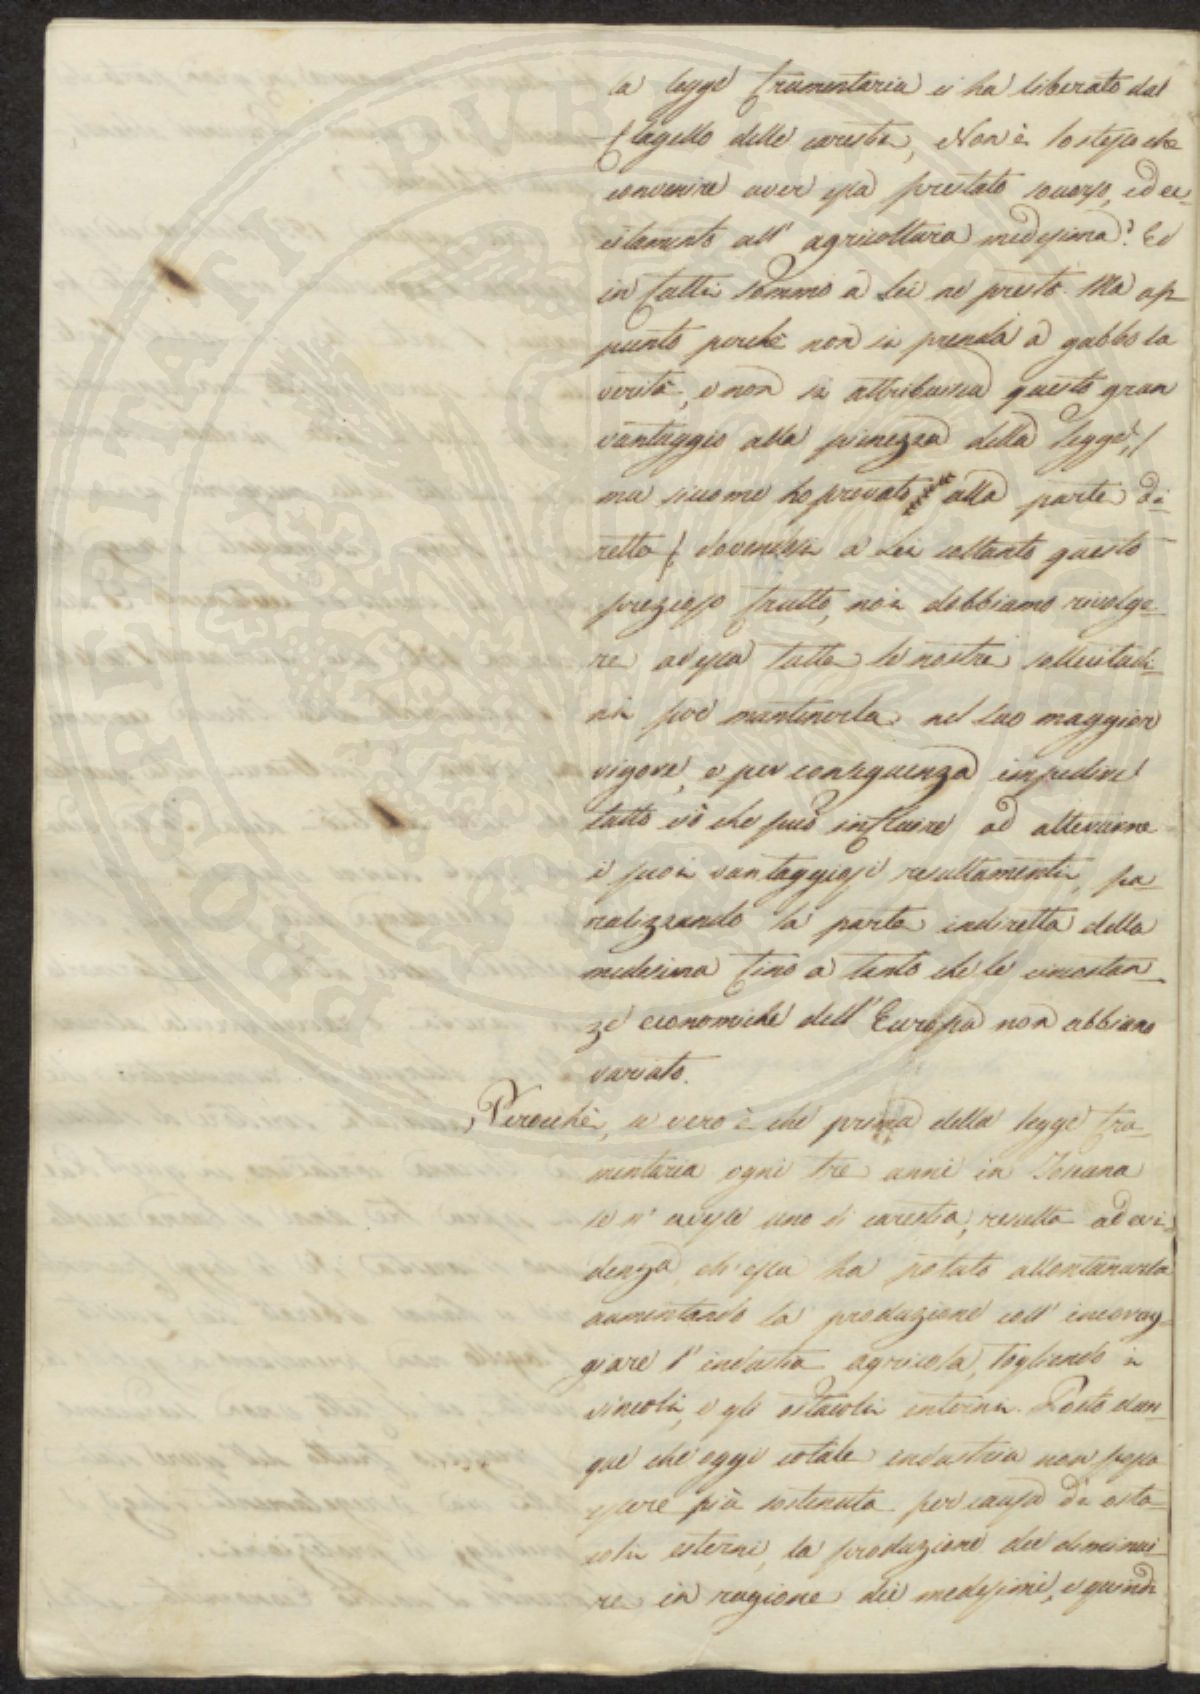 la legge frumentaria ci ha liberato dal
flagello delle carestie, Non è lo stesso che
convenire aver essa prestato soccorso, ed ec-
citamento all' agricoltura medesima? Ed
in fatti sommo a Lei ne prestò. Ma ap-
punto perché non si prenda a gabbo la
verità, e non si attribuisca questo gran
vantaggio alla pienezza della legge, (
ma siccome ho provato alla parte di-
retta) dovendosi a Lei soltanto questo
prezioso frutto, noi dobbiamo rivolge-
re ad essa tutte le nostre sollecitudi-
ni per mantenerla nel suo maggior
vigore, e per conseguenza impedire
tutto ciò che può influire ad alterarne
i suoi vantaggiosi resultamenti, pa-
ralizzando la parte indiretta della
medesima fino a tanto che le circostan-
ze economiche dell' Europa non abbiano
variato.
Perocchè, se vero è che prima della legge fru-
mentaria ogni tre anni in Toscana
se n' avesse uno di carestia, resulta ad evi-
denza, ch' essa ha potuto allontanarla
aumentando la produzione coll' incorag-
giare l' industria agricola, togliendo i
vincoli, e gli ostacoli interni. Posto dun-
que che oggi cotale industria non possa
essere più sostenuta per causa di osta-
coli esterni, la produzione dee diminui-
re in ragione dei medesimi, e quindi
PROPRIETATI PUBLICAE